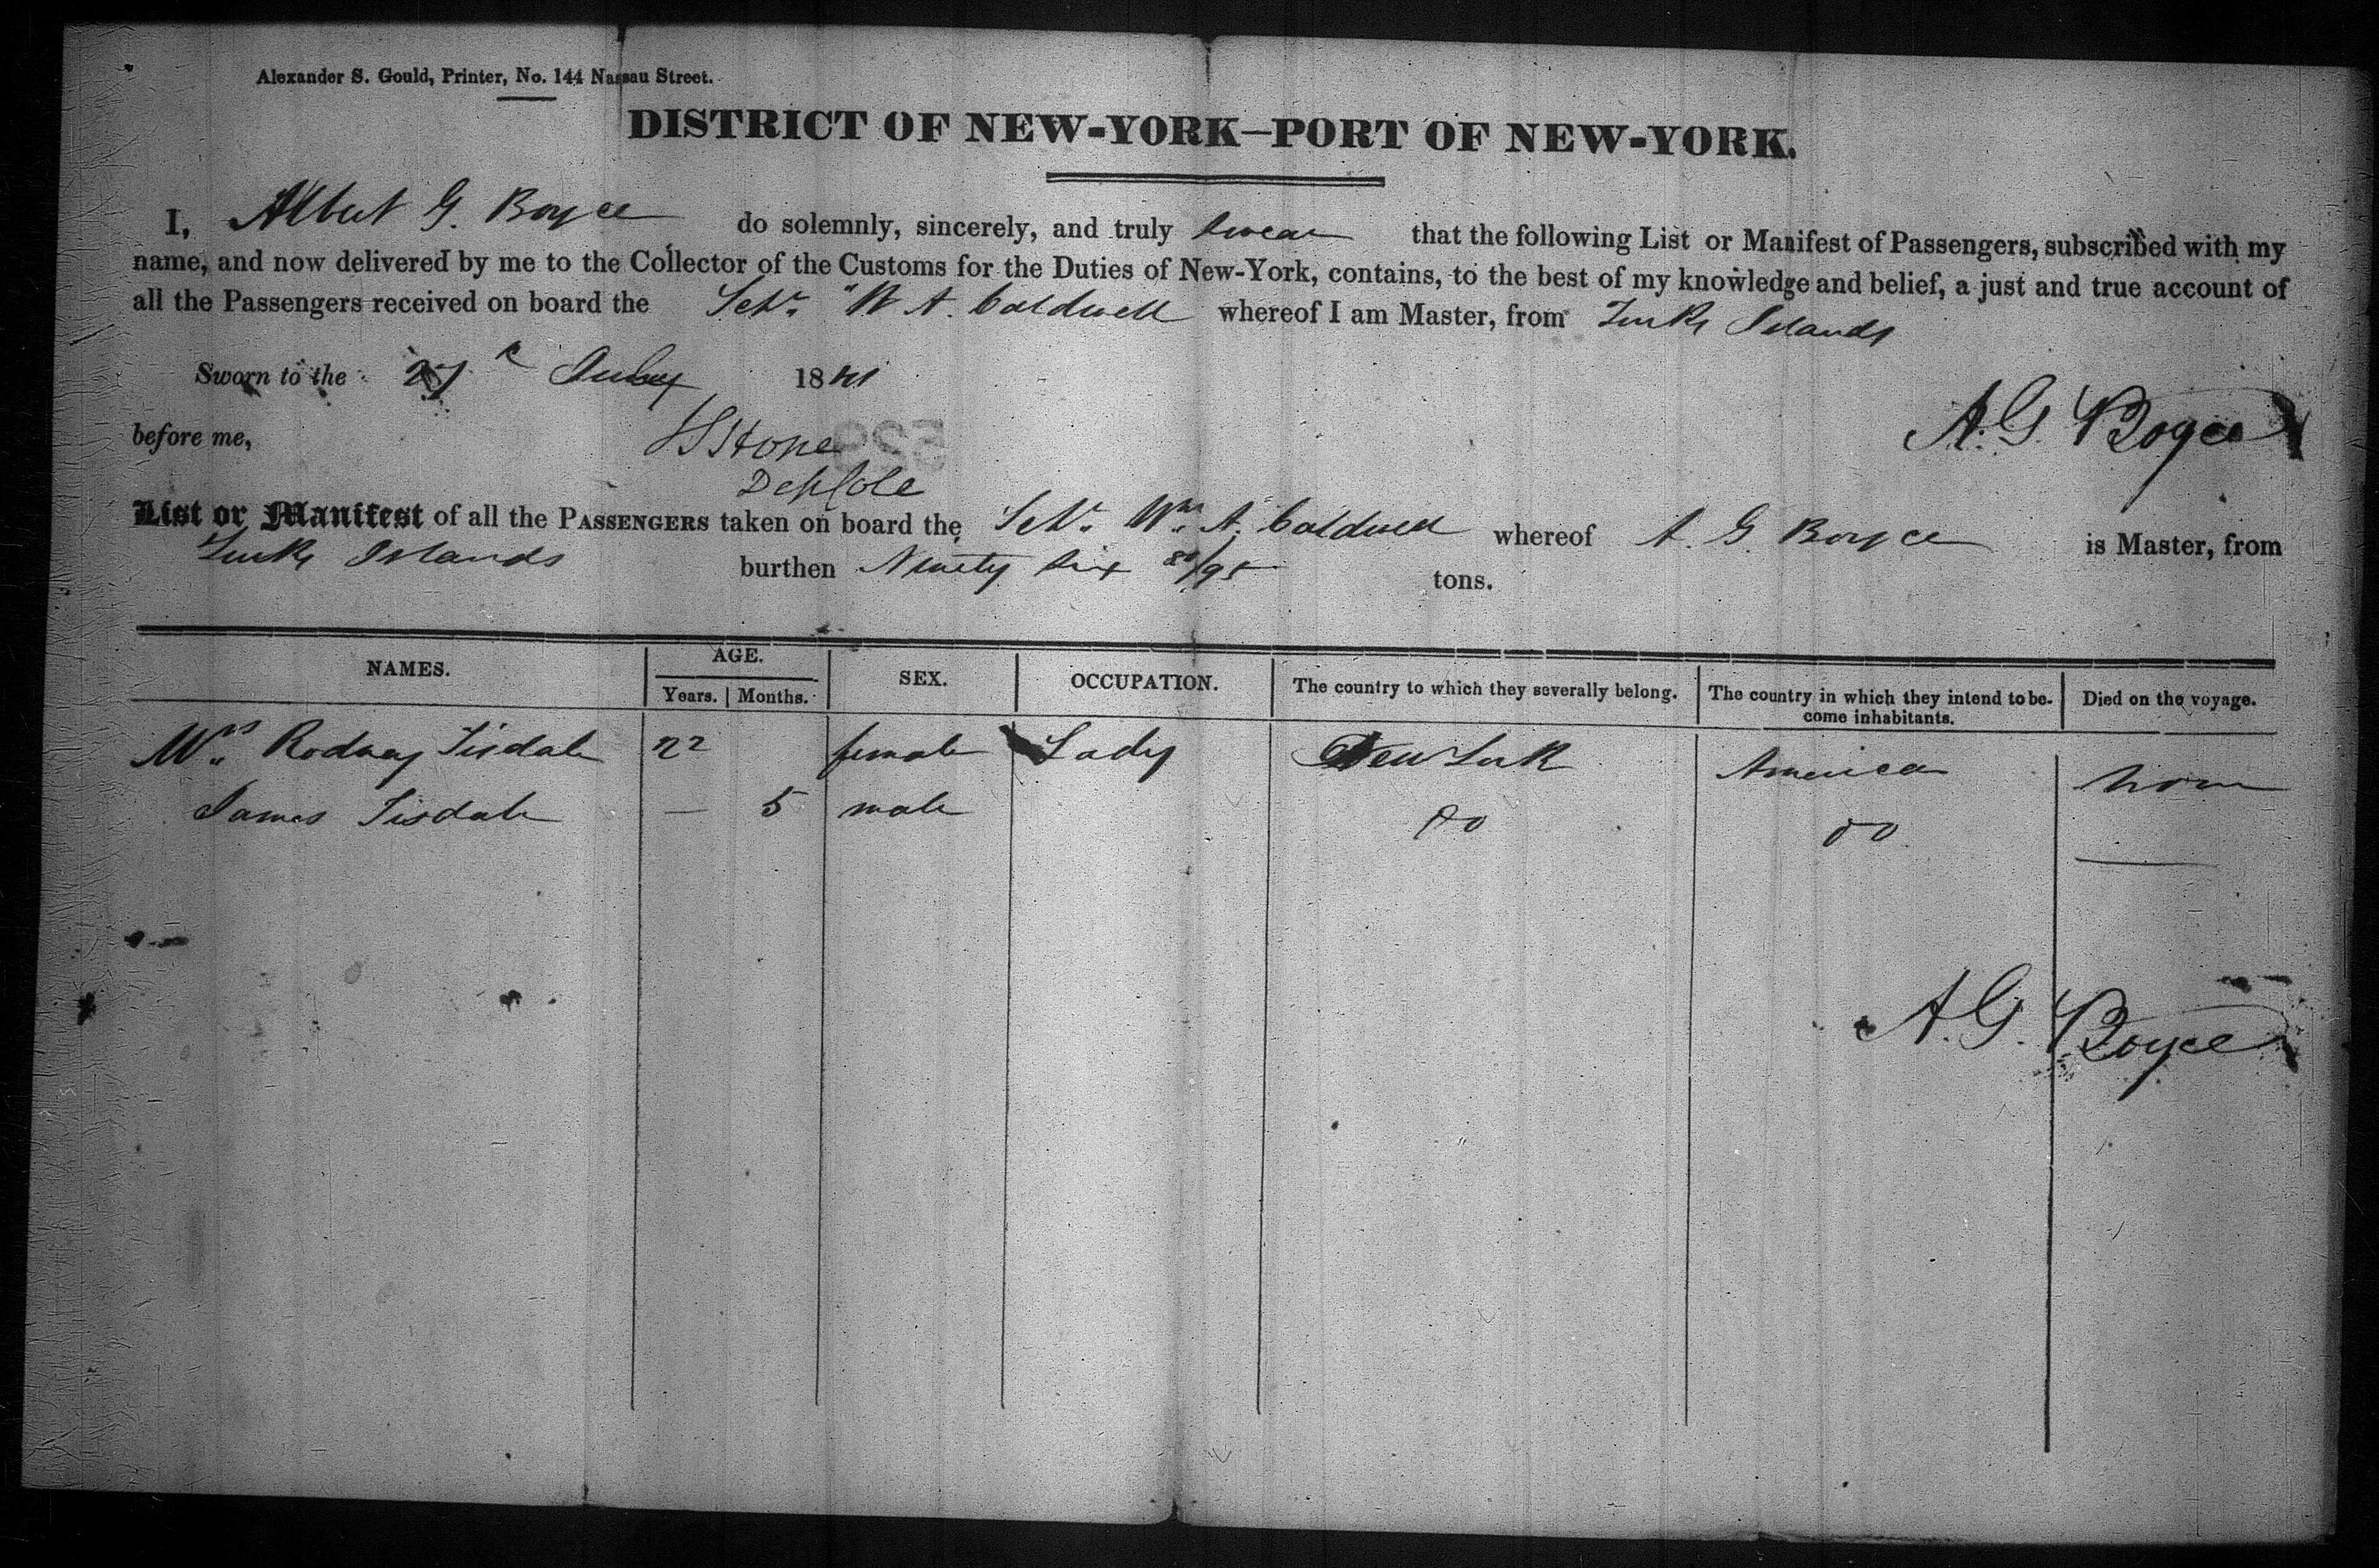 Alexander S. Gould, Printer, No. 144 Nassau Street.
DISTRICT OF NEW-YORK—PORT OF NEW-YORK.
I, Albert G. Boyce do solemnly, sincerely, and truly swear that the following List or Manifest of Passengers, subscribed with my
name, and now delivered by me to the Collector of the Customs for the Duties of New-York, contains, to the best of my knowledge and belief, a just and true account of
all the Passengers received on board the Schr. "W A. Caldwell whereof I am Master, from Turks Islands
Sworn to the 27 1841
A. G. Boyce
before me,
List or Manifest of all the PASSENGERS taken on board the Schr. Wm. A. Caldwell whereof A. G. Boyce is Master, from
Turks Islands burthen Ninety Six 80/95 tons.
NAMES. AGE. SEX. OCCUPATION. The country to which they severally belong. The country in which they intend to be- Died on the voyage.
Years. Months. come inhabitants.
Mrs. Rodney Tisdale 22 female Lady New York America none
James Tisdale — 5 male do do —
A. G. Boyce